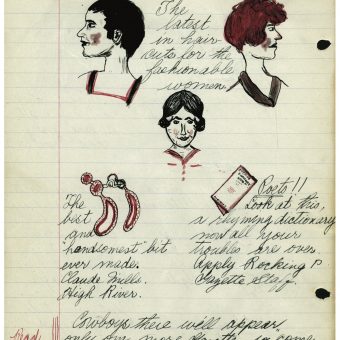 The
latest
in hair
cuts for the
fashionable
women.
The
best
and
"handsomest" bit
ever made.
Claude Mills.
High River.
Poets!!
Look at this,
a rhyming dictionary
now all your
troubles are over.
Apply Rocking P
Gazette Staff.
Cowboys there will appear
only one more